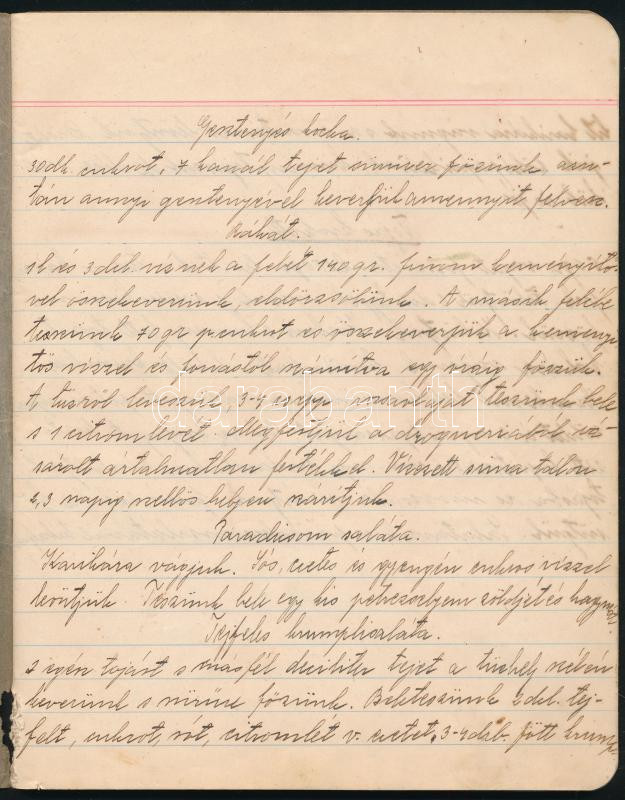 Gesztenyés kocka.
30 dk. cukrot, 7 kanál tejet simure főzünk, az-
tán annyi gesztenyével keverjük amennyit felvesz.
Rahát.
1 l. és 3 del. víznek a felét 140 gr. finom keményítő-
vel összekeverünk, eldörzsölünk. A másik felébe
teszünk 70 gr cukrot és összekeverjük a kemenyi
tős vízzel és forrástól számítva egy óráig főzük.
A tűzről levesszük, 3-4 csepp rózsaolajat teszünk bele
s 1 citrom levét. Megfestjük a drogueriában vá-
sárolt ártalmatlan festékkel. Vizezett sima tálon
2, 3 napig szellős helyen szárítjuk.
Paradicsom saláta.
Karikára vágjuk. Sós, ecetes és gyengén cukros vízzel
leöntjük. Teszünk bele egy kis petrezselyem zöldjét és hagymát.
Tejfeles krumplisaláta.
2 egész tojást s másfél deciliter tejet a tűzhely szélén
keverünk s sűrűre főzünk. Beleteszünk 2 del. tej-
felt, cukrot, sót, citromlét v. ecetet, 3-4 drb. főtt krump-
darabanth